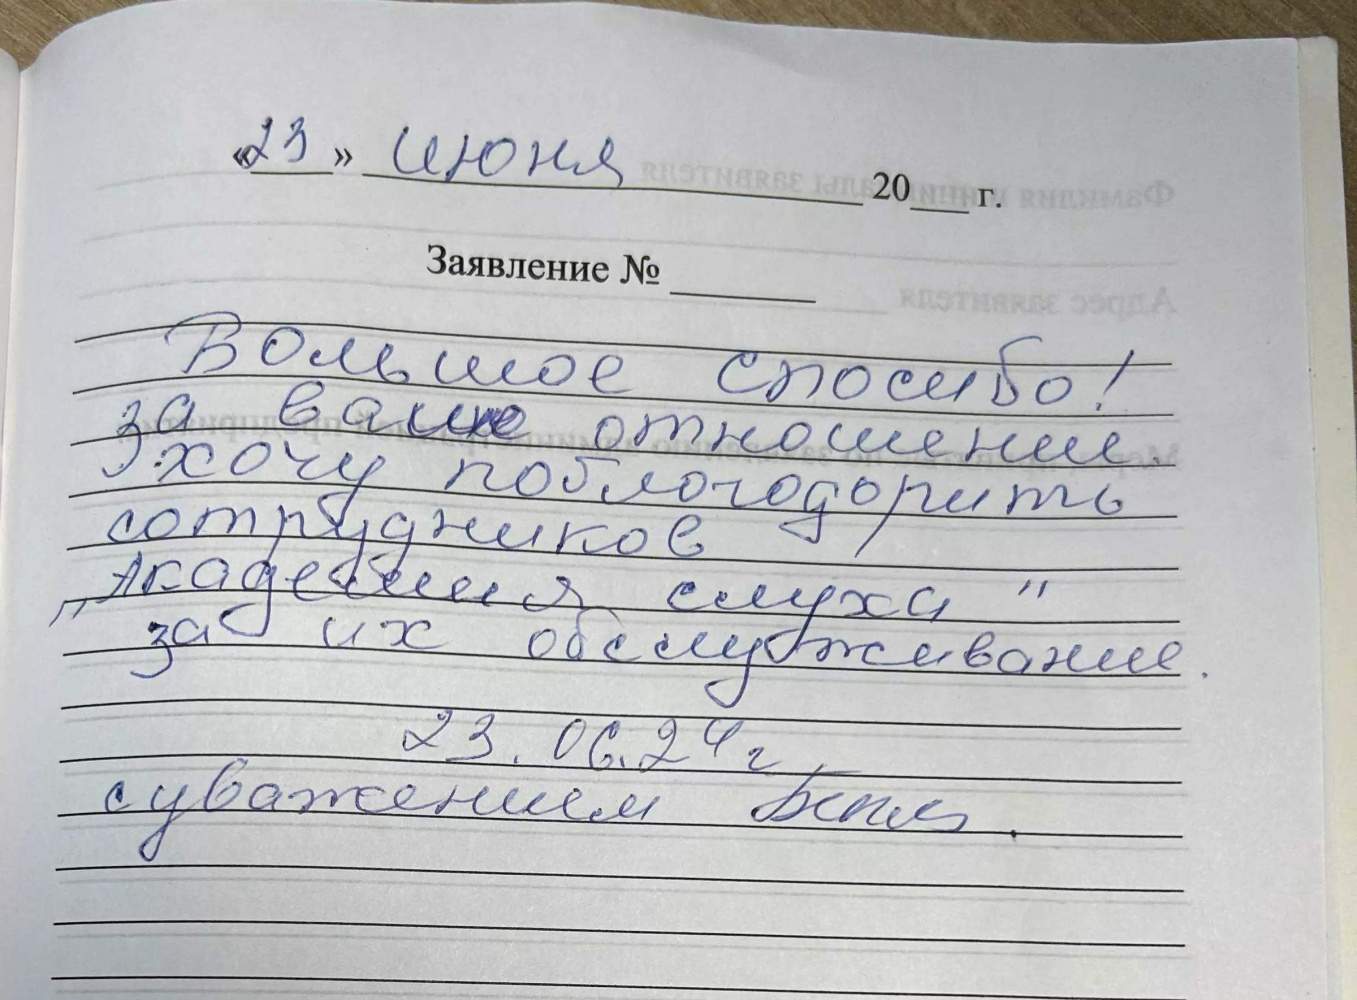 «23» июня 20___ г.
Заявление № ______
Большое спосибо!
за ваше отношение.
Я хочу поблогодорить
сотрудников
„Академия слуха"
за их обслуживание.
23.06.24г.
с уважением